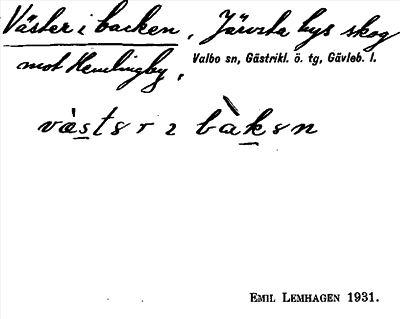 Väster i backen, Järvsta bys skog
mot Hemlingby, Valbo sn, Gästrikl. ö. tg, Gävleb. l.
vàstər ɩ bàkən
EMIL LEMHAGEN 1931.